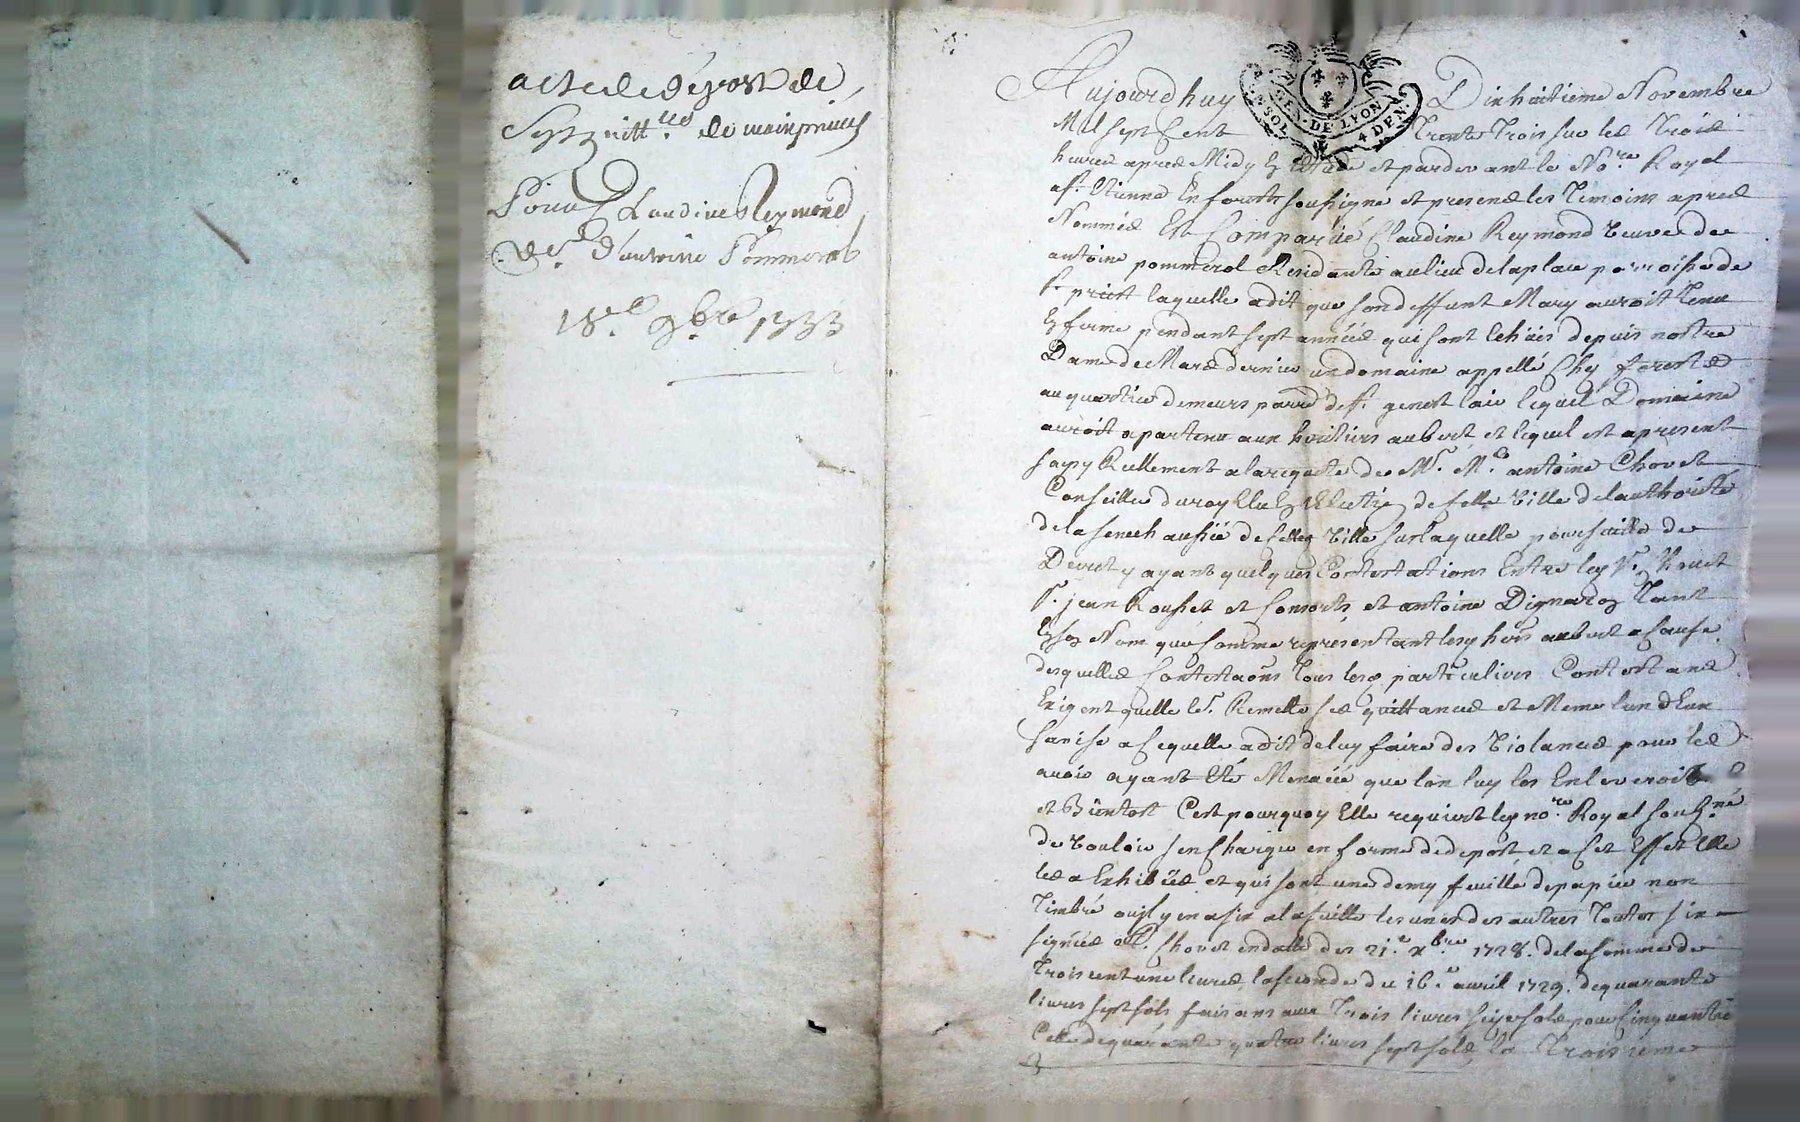 acte de depost de
Sept quitt.ces de main privée
Pour Claudine Reymond
ve. d'antoine Pommerol
18.e 9bre 1733
Aujourdhuy Dixhuitieme Novembre
Mil sept Cent Trente Trois sur les Trois
GEN. DE LYON
SOL 4 DEN.
heures apres Midy En Etude et pardevant le No.re Royal
a St. Etienne En forest soussigné et presens les Temoins apres
Nommés Est Comparue Claudine Reymond veuve de
antoine pommerol Residante au lieu de la place parroisse de
St priest laquelle a dit que son deffunt Mary auroit tenu
En ferme pendant sept années qui sont echües depuis nostre
Dame de Mars dernier un domaine appellé Chez
au quartier de meurs parr.e de St. genest lair lequel Domaine
auroit apartenu aux heritiers aubert et lequel est apresent
saisy Reellement a la requete de Mr. Me. antoine Chovet
Conseiller du roy Elu En l'Election de cette Ville de l'authorité
de la senechaussée de cette Ville sur laquelle poursuitte de
Decret y ayant quelques Contestations Entre ledt Sr. Chovet
Sr. jean Rouset et Consorts et antoine Dignaron Tant
En son Nom que comme representant lesd hoirs aubert a Cause
desquelles Contestaōns Tous lesd particuliers Contestans
Exigent quelle leur Remette ses quittances et Meme l'un d'Eux
a cequelle a dit de luy faire des violances pour les
avoir ayant Eté Menacée que l'on luy les Enleveroit
et Bientost C'est pourquoy Elle requiert led no.re Royal souss.né
de vouloir s'en Charger en forme de depost et a Cet Effet Elle
les a Exhibées et qui sont une demy feuille de papier non
Timbré ou il y en a six a la suitte les unes des autres Toutes six
signées Chovet en datte des 21.e xbre 1728. de la somme de
Trois cent une livres la seconde du 16.e avril 1729. de quarante
livres sept sols faisans avec Trois livres seize sols pour
Celle de quarante quatre livres sept sols la Troisieme